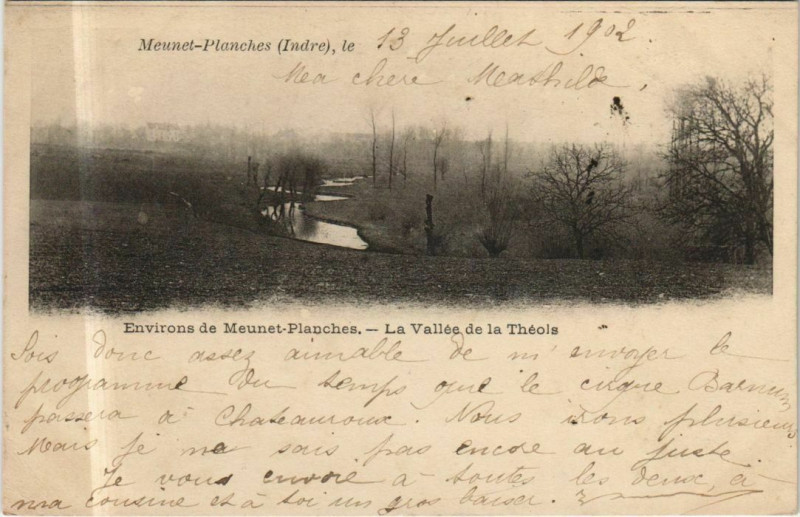 Meunet-Planches (Indre), le 13 Juillet 1902.
Ma chère Mathilde,
Environs de Meunet-Planches. — La Vallée de la Théols
Sois donc assez aimable de m'envoyer le
programme du temps que le cirque Barnum
passera à Chateauroux. Nous irons plusieurs
Mais je ne sais pas encore au juste.
Je vous envoie à toutes les deux, à
ma cousine et à toi un gros baiser.